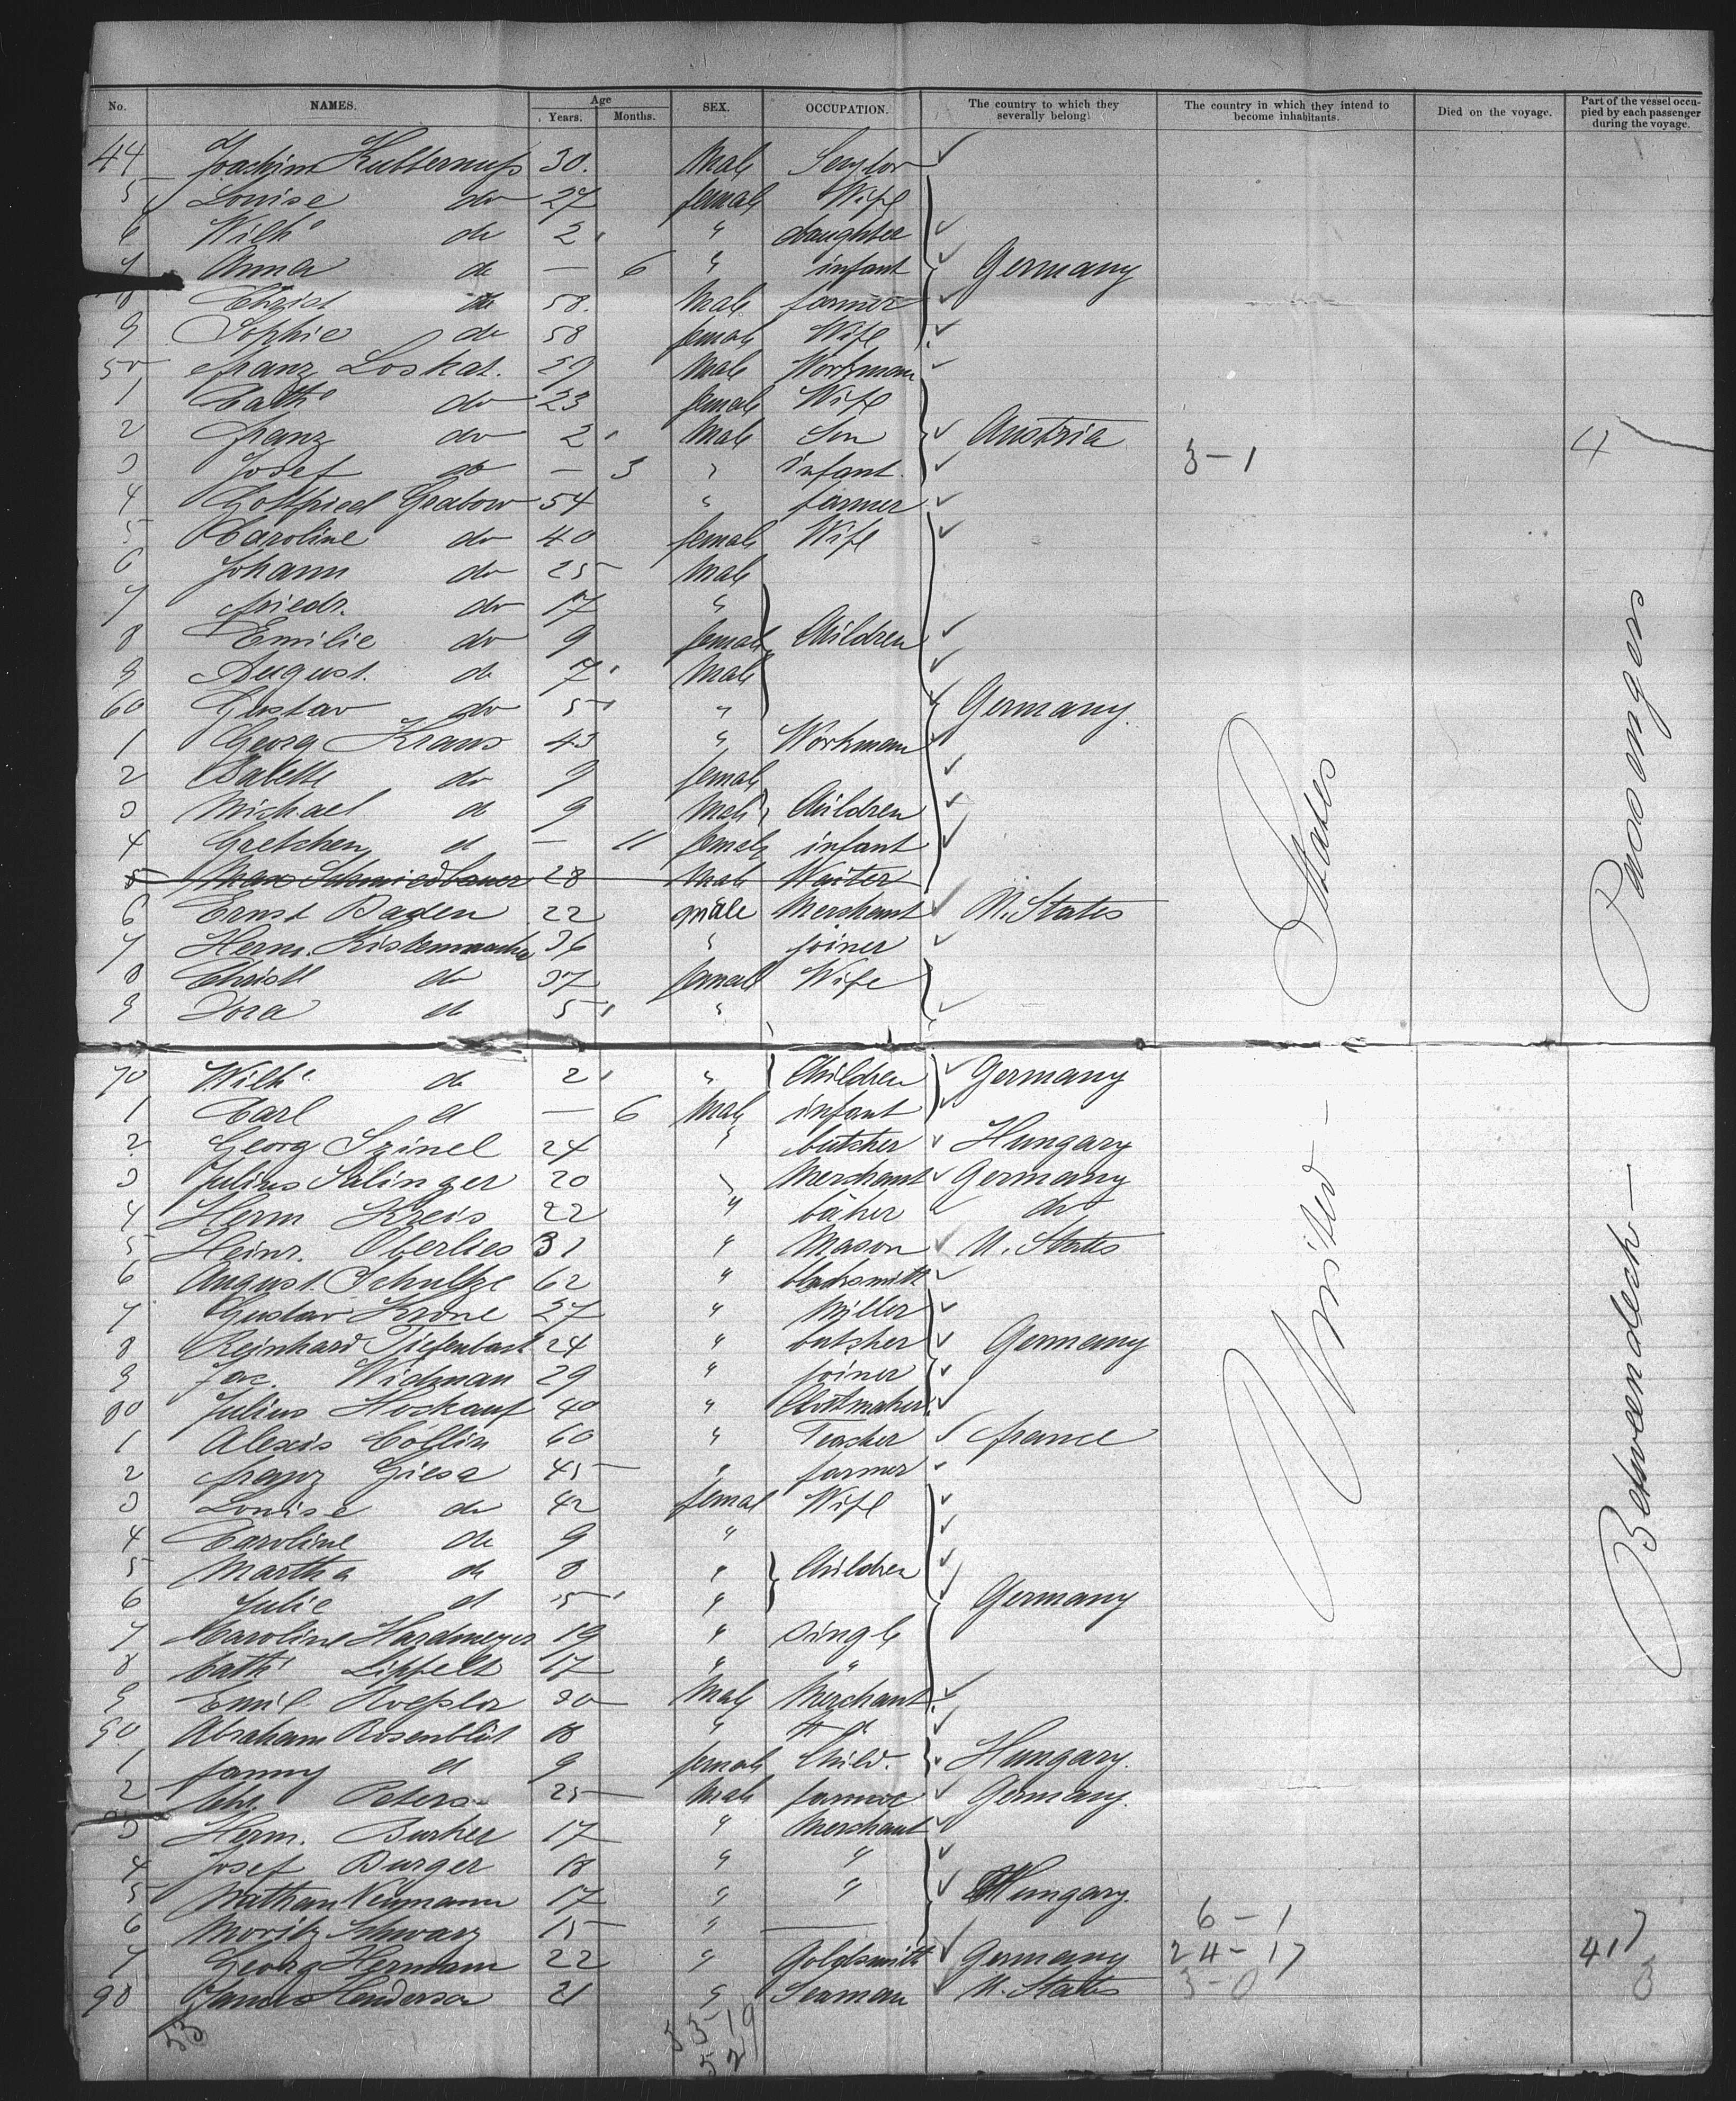 No. NAMES. Age Years. Months. SEX. OCCUPATION. The country to which they severally belong. The country in which they intend to become inhabitants. Died on the voyage. Part of the vessel occupied by each passenger during the voyage.
44 Joachim 30. Male
5 Louise do 27 female Wife
6 Wilhe do 2 " daughter
7 Anna do — 6 " infant Germany
8 Christ do 58. Male farmer
9 Sophie do 58 female Wife
50 franz Loskat. 29 Male Workman
1 Cathe do 23 female Wife
2 franz do 2 Male Son Austria
3 Josef do — 3 " infant. 3-1 4
4 Gottfried Grabow 54 " farmer
5 Caroline do 40 female Wife
6 Johann do 25 Male
7 friedr. do 17 "
8 Emilie do 9 female Children
9 August. do 7 Male
60 Gustav do 5 " Germany.
1 Georg Kraus 43 " Workman
2 Babette do 9 female
3 Michael do 9 Male Children
4 Gretchen d — 11 female infant
5 Max Schmiedbauer 28 Male Waiter
6 Ernst Baden 22 male Merchant U. States
7 Herm. Kistenmacher 36 " joiner
8 Christl do 37 female Wife
9 Dora d 5 "
70 Wilhe. do 2 " Children Germany
1 Carl d — 6 Male infant
2 Georg Szinel 24 " butcher Hungary
3 Julius Salinger 20 " Merchant Germany
4 Herm Kreis 22 " baker do
5 Heinr. Oberlies 31 " Mason U. States
6 August. Schultze 62 " blacksmith
7 Gustav Krone 27 " Miller
8 Reinhard Tiefenbach 24 " butcher Germany
9 Jac. Widman 29 " joiner
80 Julius Hockauf 40 "
1 Alexis 60 " Teacher france
2 franz Giesa 45 " farmer
3 Louise do 42 femal Wife
4 Caroline do 9 "
5 Martha do 8 " Children
6 Julie d 5 " Germany
7 Caroline Hardmeyer 19 " single
8 Cathe Lipfelt 17 " "
9 Emil 30 Male Merchant
90 Abraham Rosenblüt 18 " "
1 fanny d 9 female Child. Hungary.
2 Chr. Peters 25 Male farmer Germany.
3 Herm. 17 " Merchant
4 Josef Burger 18 " "
5 Nathan Neumann 17 " " Hungary.
6 Moritz Schwarz 15 " — 6-1
7 Georg Hermann 22 " Goldsmith Germany 24-17
98 James Henderson 21 " Seaman U. States 3-0
53 53-19
52
United — States
Betweendeck — Passengers